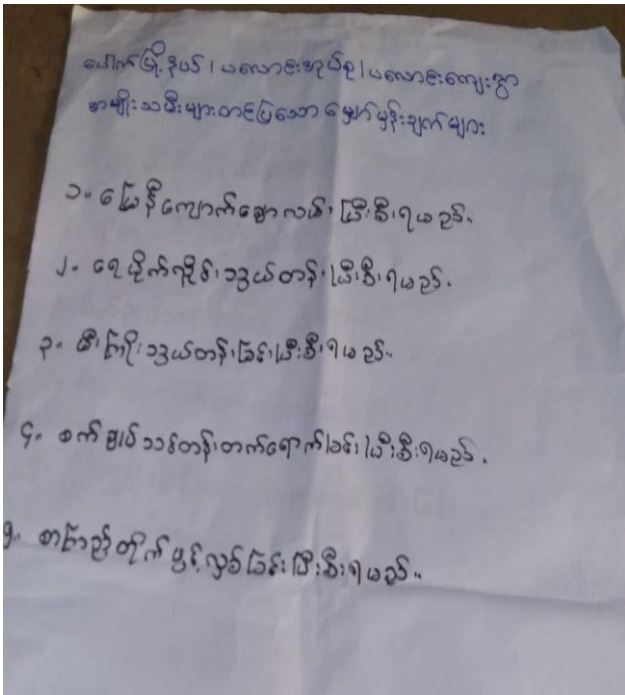 ပေါက်မြို့နယ်၊ မလောင်းအုပ်စု၊ မလောင်းကျေးရွာ
အမျိုးသမီးများတင်ပြသော မျှော်မှန်းချက်များ
၁။ မြေနီကျောက်ချောလမ်း ပြီးစီးရမည်။
၂။ ရေပိုက်လိုင်း သွယ်တန်း ပြီးစီးရမည်။
၃။ မီးကြိုးသွယ်တန်းခြင်း ပြီးစီးရမည်။
၄။ စက်ချုပ်သင်တန်းတက်ရောက်ခြင်း ပြီးစီးရမည်။
၅။ စာကြည့်တိုက်ဖွင့်လှစ်ခြင်း ပြီးစီးရမည်။